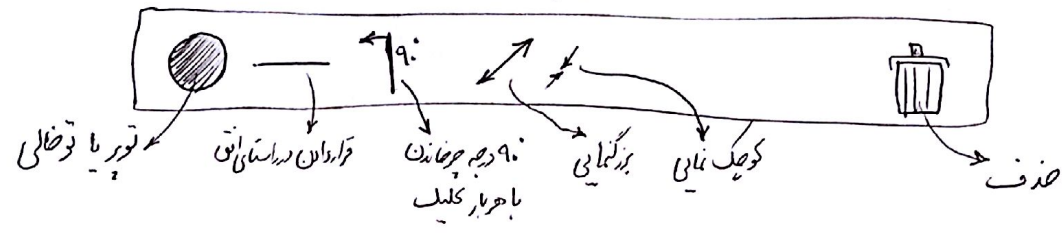 ۹۰°
توپر یا توخالی
قرار دادن در راستای افق
۹۰ درجه چرخاندن
با هر بار کلیک
بزرگنمایی
کوچک نمایی
حذف